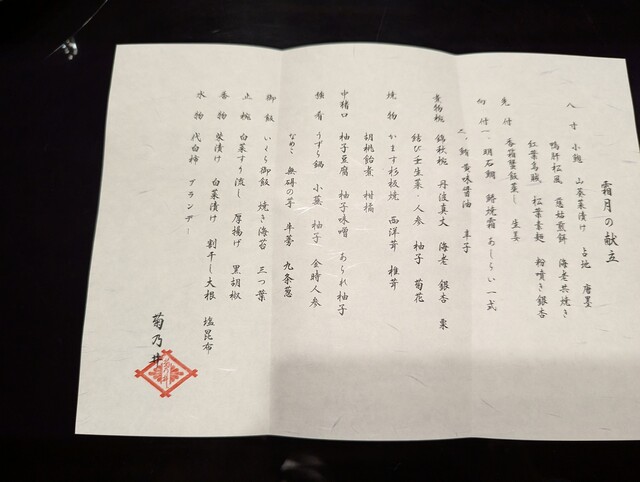 霜月の献立
八寸 小鯛 山茶菜漬け 占地 唐墨
鴨肝松風 慈姑煎餅 海老共焼き
紅葉烏賊 松葉素麺 粉噴き銀杏
先付 香箱蟹飯蒸し 生姜
向付 一、明石鯛 鰆焼霜 あしらい一式
二、鮪 黄味醤油 辛子
煮物椀 錦秋椀 丹波真丈 海老 銀杏 栗
結び壬生菜・人参 柚子 菊花
焼物 かます杉板焼 西洋茸 椎茸
胡桃飴煮 柑橘
中猪口 柚子豆腐 柚子味噌 あられ柚子
強肴 うずら鍋 小蕪 柚子 金時人参
なめこ 無碍の芋 牛蒡 九条葱
御飯 いくら御飯 焼き海苔 三つ葉
止椀 白菜すり流し 厚揚げ 黒胡椒
香物 柴漬け 白菜漬け 割干し大根 塩昆布
水物 代白柿 ブランデー
菊乃井